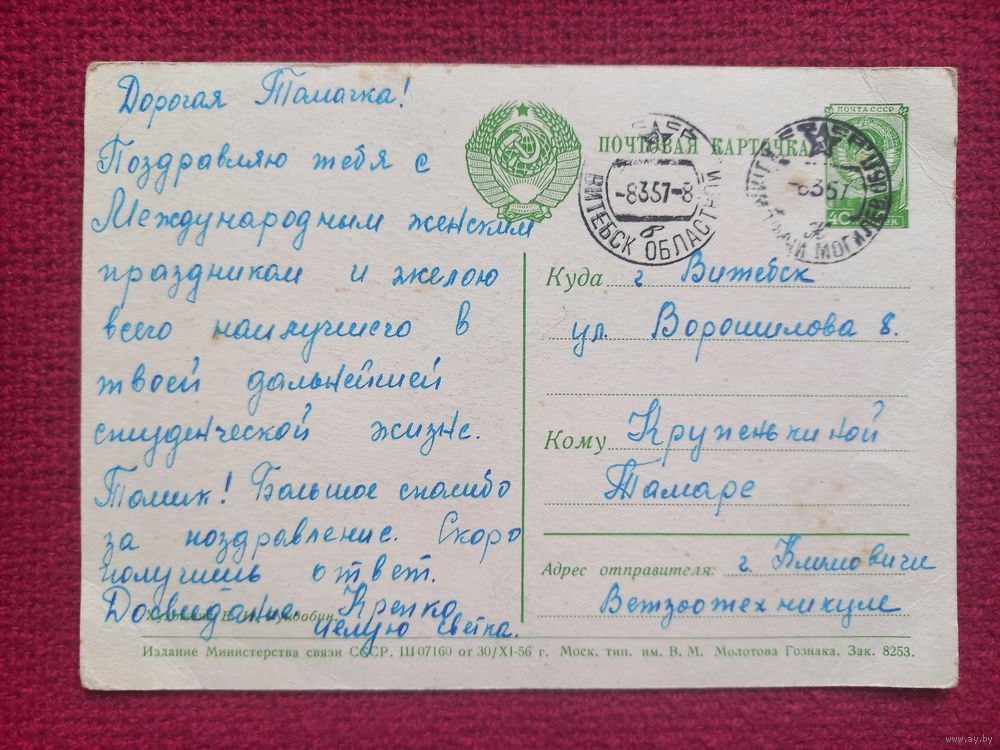 Дорогая Томачка!
Поздравляю тебя с
Международным женским
праздником и желою
всего наилучшего в
твоей дальнейшей
студенческой жизне.
Томик! Большое спасибо
за поздравление. Скоро
получишь ответ.
Досвидание. Крепко
целую Светка.
ПОЧТОВАЯ КАРТОЧКА
ПОЧТА СССР
40
-8357-8
ВИТЕБСК ОБЛАСТНОЙ
-8357
МОГИЛЕВ
Куда г Витебск
ул. Ворошилова 8.
Кому Круженькиной
Тамаре
Адрес отправителя: г. Климовичи
Ветзоотехникум
Издание Министерства связи СССР. Ш07160 от 30/XI-56 г. Моск. тип. им. В. М. Молотова Гознака. Зак. 8253.
www.ay.by